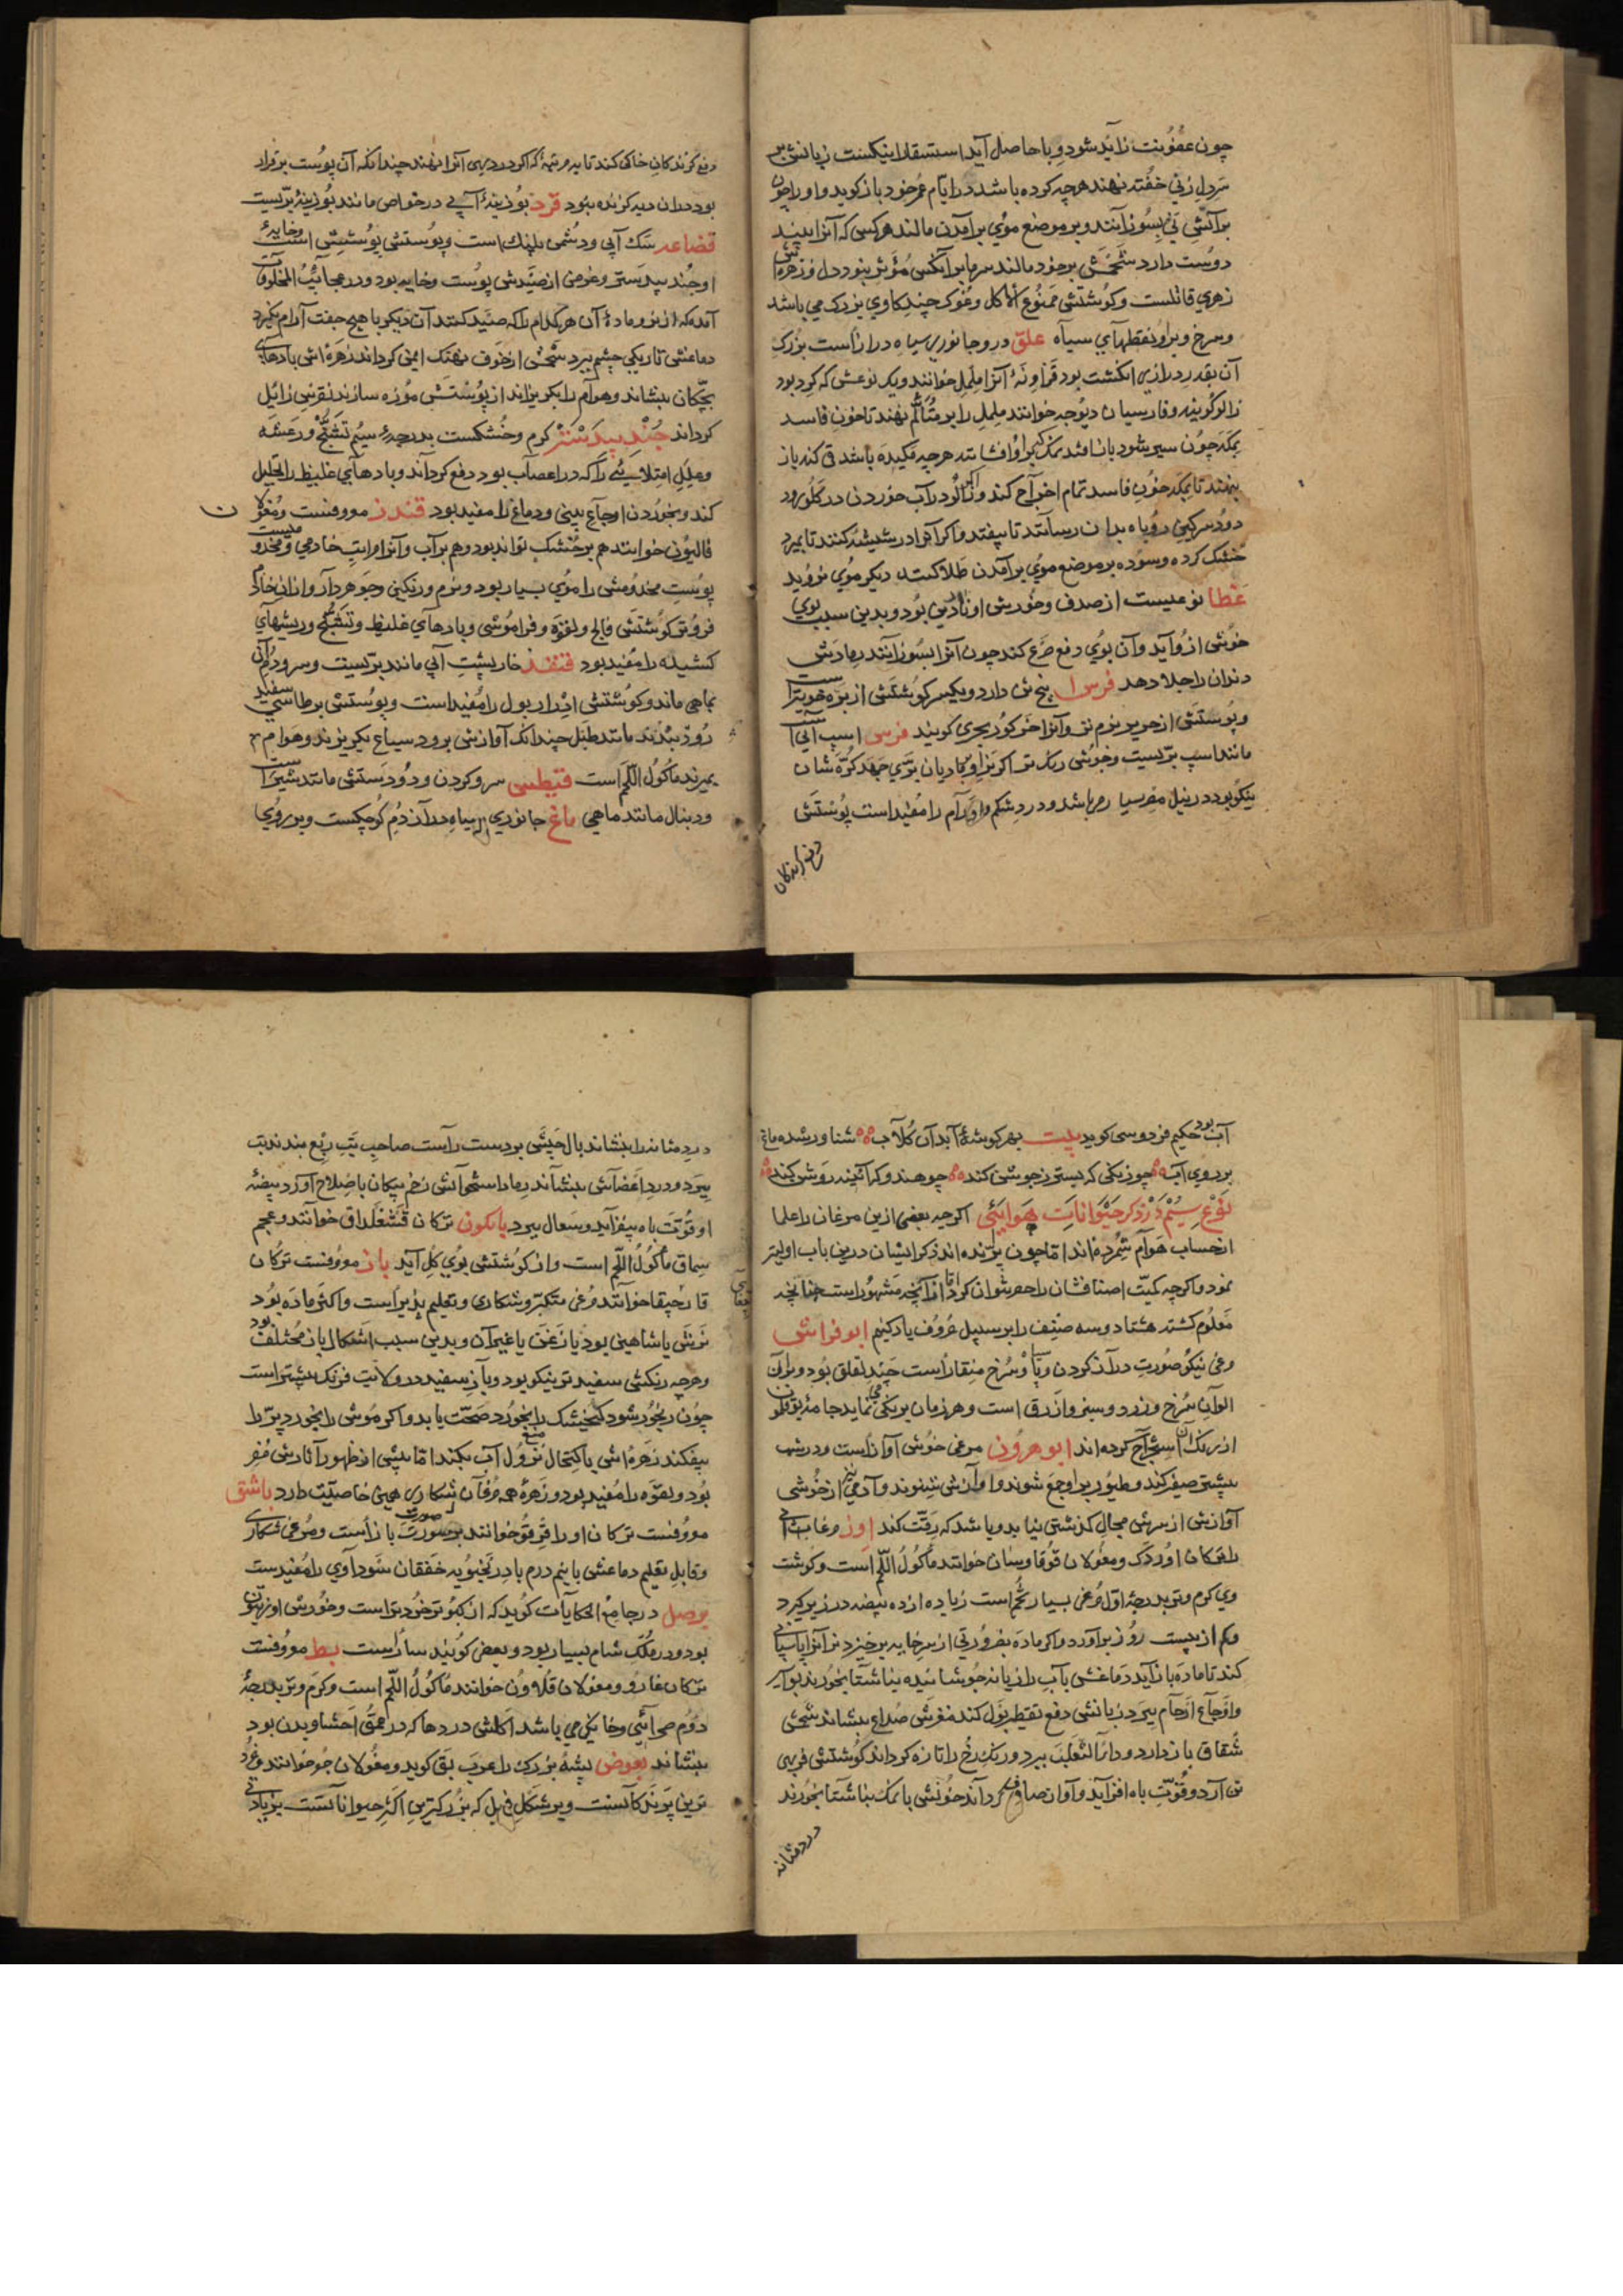 چون عفونت زاید شود وبا حاصل آید استسقا را نیکست زبانش بر
سر دل زنی خفته نهند هرچه کرده باشد در ایام عمر خود باز کوید و او را چون
بر آتش نی بسوزانند و بر موضع موی بر آمدن مالند هر کسی که آنرا بیند
دوست دارد شحمش بر خود مالند سرما بر آنکس مؤثر نبود دل و زهره اش
زهری قاتلست و کوشتش ممنوع الاکل و غوک چند کاوی بزرک می باشد
و سرخ و برو نقطهای سیاه علق دروجانوری سیاه دراز است بزرک
آن بقدر درازی انکشت بود آنرا ململ خوانند و یک نوعش که کرد بود
زالو کویند و فارسیان دیوجه خوانند ململ را بر متألم نهند تا خون فاسد
بمکد چون سیر شود باز افتد نمک بر او افشانند هرچه مکیده باشد قی کند باز
بنهند تا بمکد خون فاسد تمام اخراج کند و اکر زالو در آب خوردن در کلو رود
دود سرکین روباه بدان رسانند تا بیفتد و اکر آنرا در شیشه کنند تا بمیرد
خشک کرده و سوده بر موضع موی بر آمدن طلا کنند دیکر موی نروید
غطا نوعیست از صدف و خورش او ناردین بود و بدین سبب بوی
خوش ازو آید و آن بوی دفع صرع کند چون آنرا بسوزانند رمادش
دندان را جلا دهد فرس ا پنج تن دارد و یکسر کوشتش از بره خوبتر است
و پوستش از حریر نرم تر و آنرا خر کور بحری کویند فرس اسپ آبی است
مانند اسپ بریست و خوش رنک تر اکر نر او بمادیان بری جهد کره شان
نیکو بود در نیل مصر بسیار می باشد و درد شکم و اورام را مفید است پوستش
دفع کزندکان
دفع کزندکان خاکی کند تا بمرتبه که اکر در دیهی آنرا نهند چندانکه آن پوست برقرار
بود دران دیه کزنده نبود قرد بوزینهٔ آبی در خواص مانند بوزینهٔ بریست
قضاعه سک آبی و دشمن پلنک است و پوستش پوشش است و خایهٔ
او جند بیدستر و غرض از صیدش پوست و خایه بود و در عجایب المخلوقات
آمده که از نر و مادهٔ آن هر کدام را که صید کنند آن دیکر با هیچ جفت آرام نکیرد
دماغش تاریکی چشم ببرد شحمش از خوف نهنک ایمن کرداند زهره اش بادهای
بچکان بنشاند و هوام را بکریزاند از پوستش موزه سازند نقرس زایل
کرداند جند بیدستر کرم و خشکست بدرجهٔ سیم تشنج و رعشه
و علل امتلایی را که در اعصاب بود دفع کرداند و بادهای غلیظ را تحلیل
کند و بخوردن اوجاع بینی و دماغ را مفید بود قندز معروفست و مغولان
قالیون خوانند هم بر خشک تواند بود و هم بر آب و آنرا مراتب خادمی و مخدومیست
پوست مخدومش را موی بسیار بود و نرم و رنکین و جوهردار و از آن خادم
فروتر کوشتش فالج و لقوه و فراموشی و بادهای غلیظ و تشنج و ریشهای
کنشیله را مفید بود قنفذ خارپشت آبی مانند بریست و سر و دم آنی
بماهی ماند و کوشتش ادرار بول را مفید است و پوستش بر طاسی سفید
روز بندند مانند طبل چندانک آوازش برود سباع بکریزند و هوام
بمیرند مأکول اللحم است قیطس سر و کردن و دو دستش مانند شیر است
و دنبال مانند ماهی ماغ جانوری سیاه دراز دم کوچکست و بر روی
آب بود حکیم فردوسی کوید بیت بهر کوشهٔ آبدان کلاب شناور شده ماغ
بر روی آب چو زنکی که بستر ز جوشن کند چو هندو که آئینه روشن کند
نوع سیم در ذکر حیوانات هوایی اکرچه بعضی ازین مرغان را علما
از حساب هوام شمرده اند اما چون پرنده اند ذکر ایشان درین باب اولیتر
نمود و اکرچه کمیت اصنافشان را حصر نتوان کرد اما از آنچه مشهور است چنانچه
معلوم کشته هشتاد و سه صنف را بر سبیل حروف یاد کنیم ابو فراش
مرغی نیکو صورت دراز کردن و پا و سرخ منقار است چند لقلق بود و بران
الوان سرخ و زرد و سبز و ازرق است و هر زمان برنکی می نماید جامهٔ بوقلمون
از رنک آن استخراج کرده اند ابو هرون مرغی خوش آواز است و در شب
بیشتر صفیر کند و طیور برو جمع شوند و آوازش شنوند و آدمی نیز از خوشی
آوازش از سرش مجال کذشتن نیابد و باشد که رقت کند اوز مرغابی
را ترکان اوردک و مغولان قوقاوسان خوانند مأکول اللحم است و کوشت
وی کرم و تر بدرجهٔ اول مرغی بسیار تخم است زیاده از ده بیضه در زیر کیرد
و کم از بیست روز برآورد و اکر ماده بضرورتی از سر خایه برخیزد نر آنرا پاسبانی
کند تا ماده باز آید دماغش با آب رازیانه جوشانیده بناشتا بخورند بواسیر
و اوجاع ارحام ببرد زبانش دفع تقطیر بول کند مغزش صداع بنشاند شحمش
شقاق باز دارد و داء الثعلب ببرد و رنک رخ را تازه کرداند کوشتش فربهی
تن آرد و قوت باه افزاید و آواز صافی کرداند خونش با نمک بناشتا بخورند
درد مثانه
درد مثانه را بنشاند بال چپش بر دست راست صاحب تب ربع بندند تب
ببرد و درد اعضاش بنشاند رماد استخوانش زخم پیکان باصلاح آورد بیضهٔ
او قوت باه بیفزاید و سعال ببرد باتکون ترکان قشغلداق خوانند و عجم
سماق مأکول اللحم است و از کوشتش بوی کل آید باز معروفست ترکان
قارجیقا خوانند مرغی متکبر و شکاری و تعلیم پذیر است و اکثر ماده بود
نرش یا شاهین بود یا زغن یا غیر آن و بدین سبب اشکال باز مختلف بود
و هرچه رنکش سفیدتر نیکو بود و باز سفید در ولایت فرنک بیشتر است
چون رنجور شود کنجشک را بخورد صحت یابد و اکر موش را بخورد پر را
بیفکند زهره اش باکتحال منع نزول آب بکند اما پیش از ظهور آثارش مضر
بود و لقوه را مفید بود و زهرهٔ همه مرغان شکاری همین خاصیت دارد باشق
معروفست ترکان او را قرقو خوانند بصورت باز است و مرغی شکاری
و قابل تعلیم دماغش با نیم درم بادرنجبویه خفقان سوداوی را مفیدست
بوصل در جامع الحکایات کوید که از کبوتر خردتر است و خورش او زیتون
بود و در ملک شام بسیار بود و بعضی کویند سار است بط معروفست
ترکان غاز و مغولان قلاون خوانند مأکول اللحم است و کرم و تر بدرجهٔ
دوم صحرائی و خانکی می باشد اکلش دردها که در عمق احشا و بدن بود
بنشاند بعوض پشهٔ بزرک را عرب بق کوید و مغولان جو خوانند و خرد
ترین پرندکانست و بر شکل فیل که بزرکترین اکثر حیواناتست بزیادتی